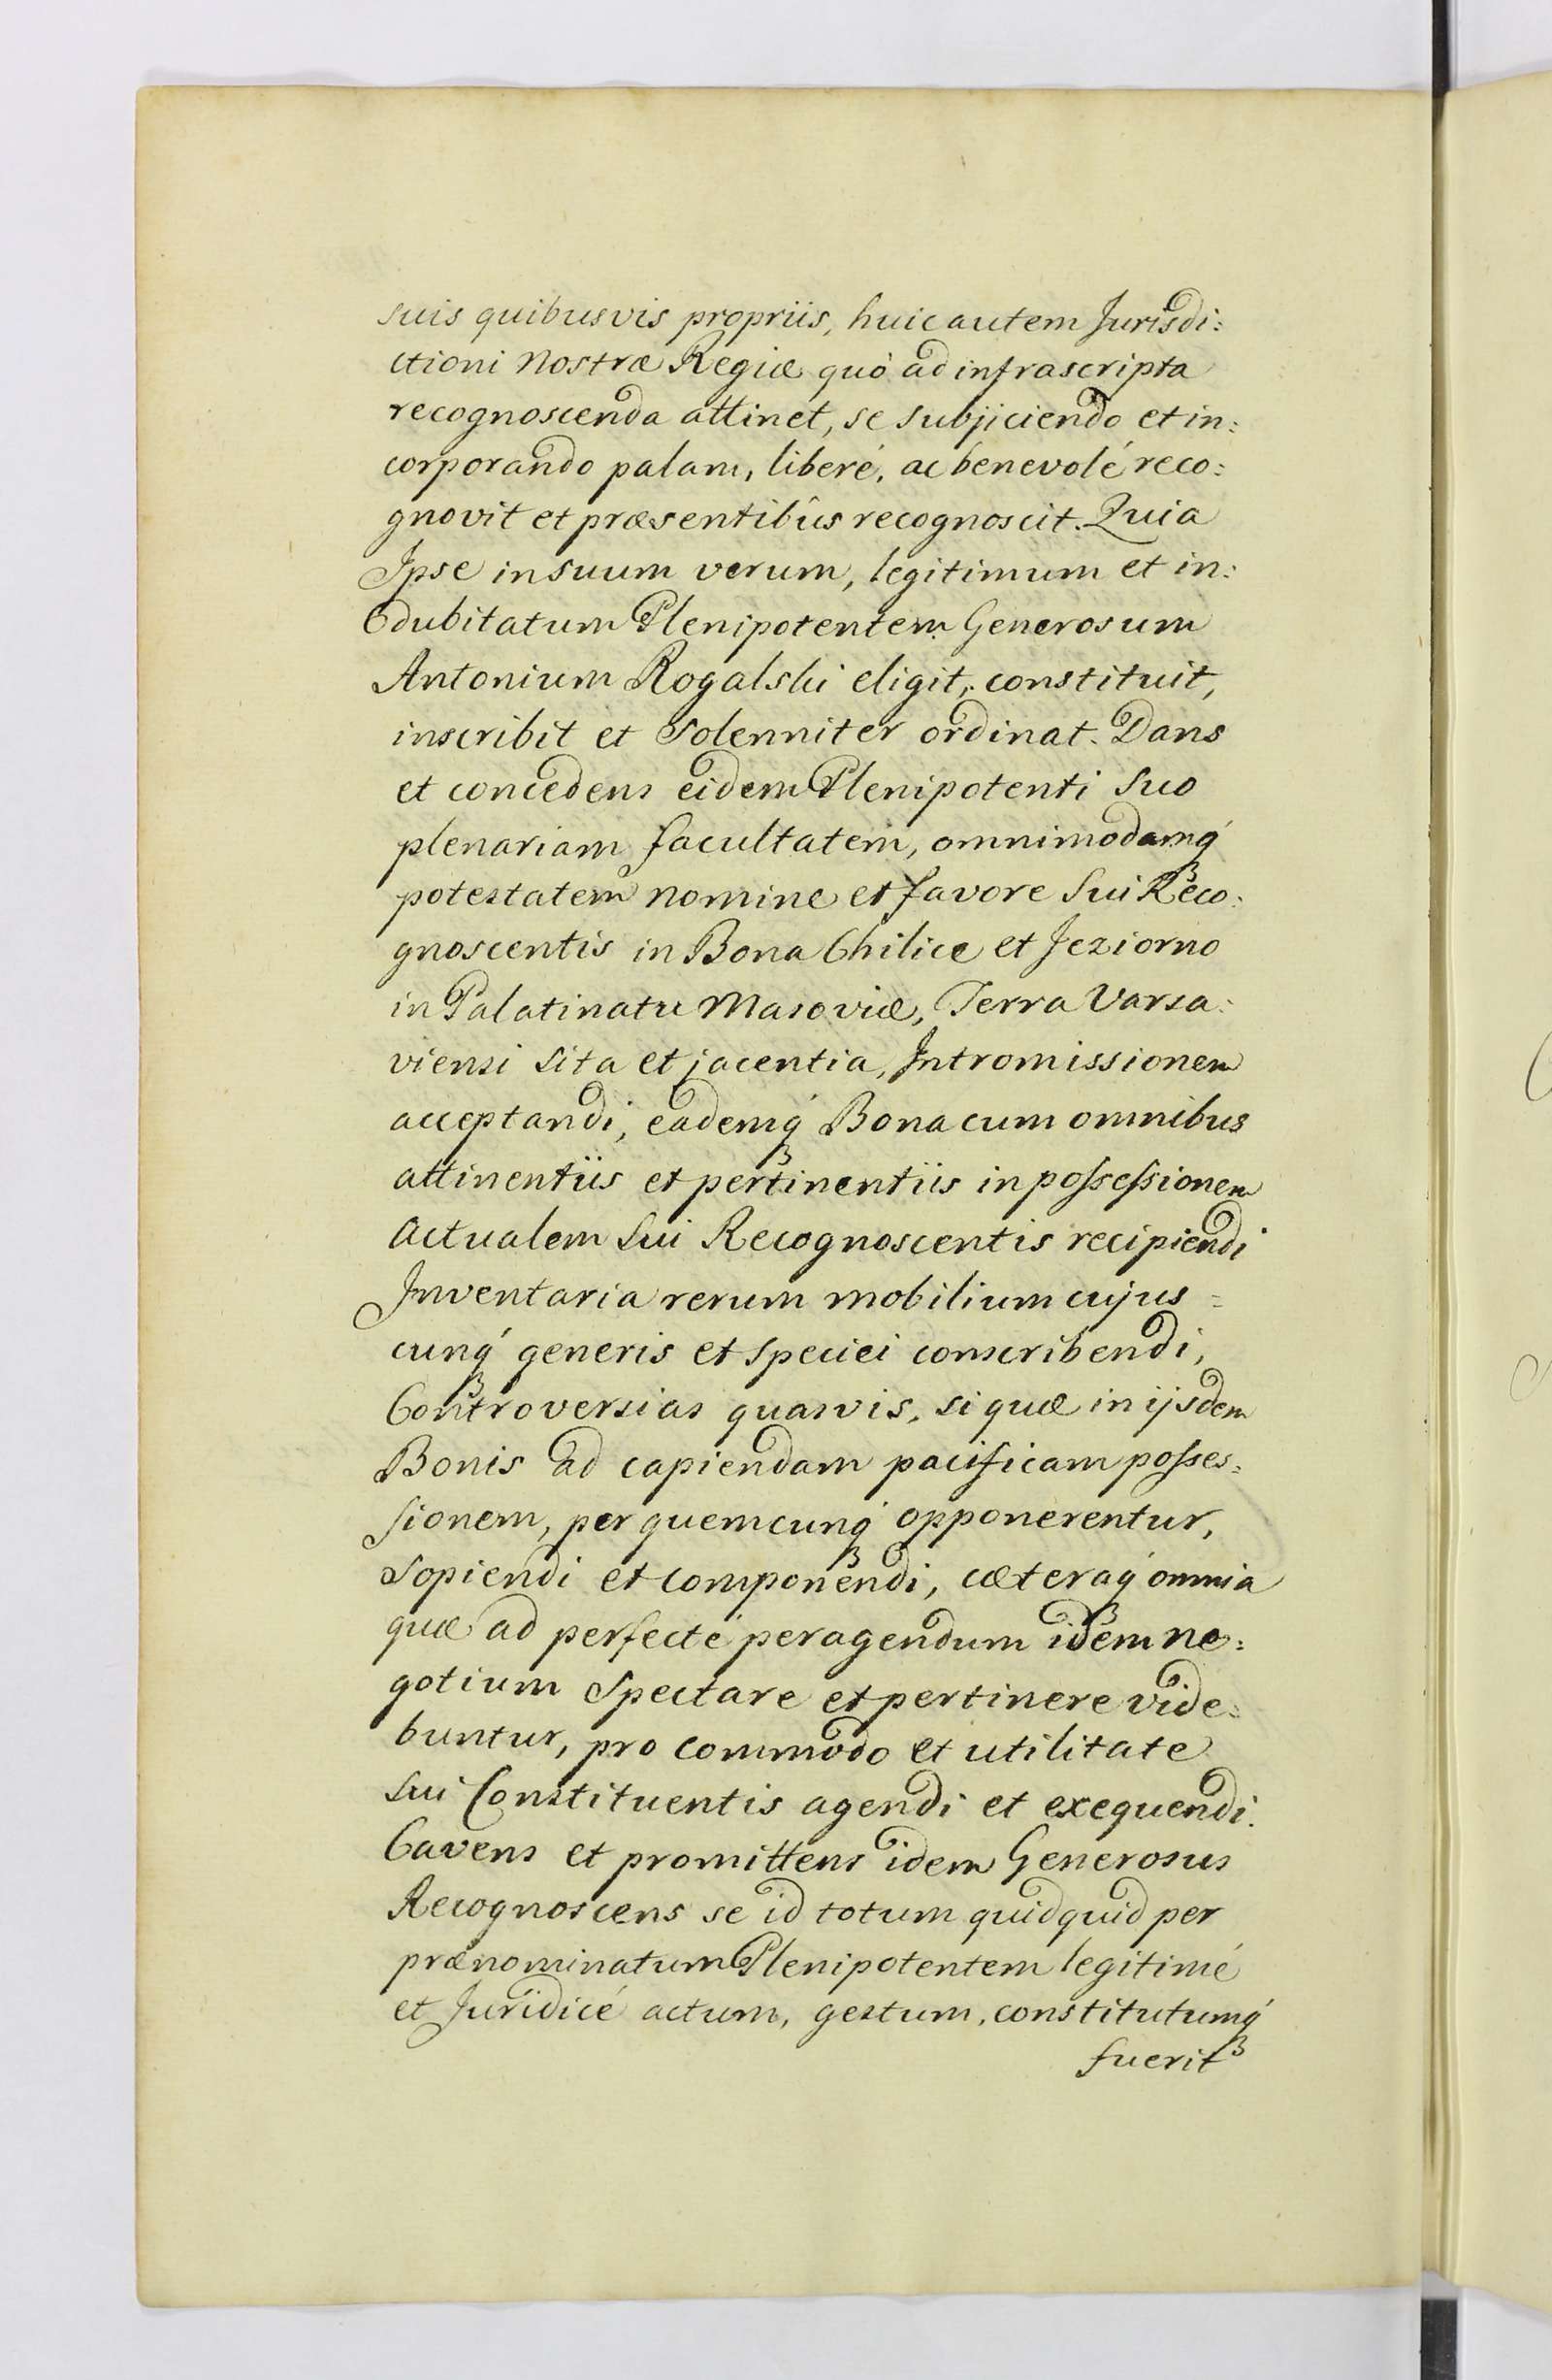 suis quibusvis propriis, huic autem Jurisdi:
ctioni Nostræ Regiæ quò ad infrascripta
recognoscenda attinet, se subjiciendo et in:
corporando palam, liberé, ac benevolé reco:
gnovit et præsentibûs recognoscit. Quia
Ipse in suum verum, legitimum et in:
dubitatum Plenipotentem Generosum
Antonium Rogalski eligit, constituit,
inscribit et Solenniter ordinat. Dans
et concedens eidem Plenipotenti Suo
plenariam facultatem, omnimodamq́
potestatem nomine et favore Sui Reco:
gnoscentis in Bona Chilice et Jeziorno
in Palatinatu Masoviæ, Terra Varsa:
viensi sita et jacentia, Intromissionem
acceptandi, eademq́ Bona cum omnibus
attinentiis et pertinentiis in possessionem
actualem Sui Recognoscentis recipiendi
Inventaria rerum mobilium cujus=
cunq́ generis et speciei conscribendi,
Controversias quasvis, si quæ in ijsdem
Bonis ad capiendam pacificam posses:
sionem, per quemcunq́ opponerentur,
Sopiendi et componendi, cæteraq́ omnia
quæ ad perfecté peragendum idem ne:
gotium Spectare et pertinere vide:
buntur, pro commodo et utilitate
Sui Constituentis agendi et exequendi.
Cavens et promittens idem Generosus
Recognoscens se id totum quidquid per
prænominatum Plenipotentem legitimé
et Juridicé actum, gestum, constitutumq́
fuerit